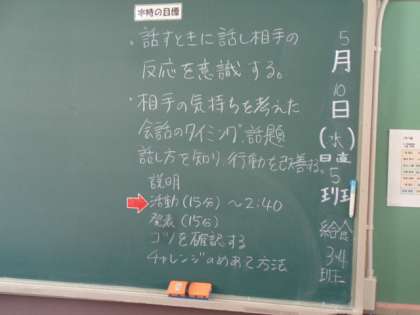 本時の目標
・話すときに話し相手の
反応を意識する。
・相手の気持ちを考えた
会話のタイミング、話題
話し方を知り行動を改善する。
説明
活動(15分)〜2:40
発表(15分)
コツを確認する
チャレンジのめあて方法
5月10日(水)
日直
5班
給食
3・4班